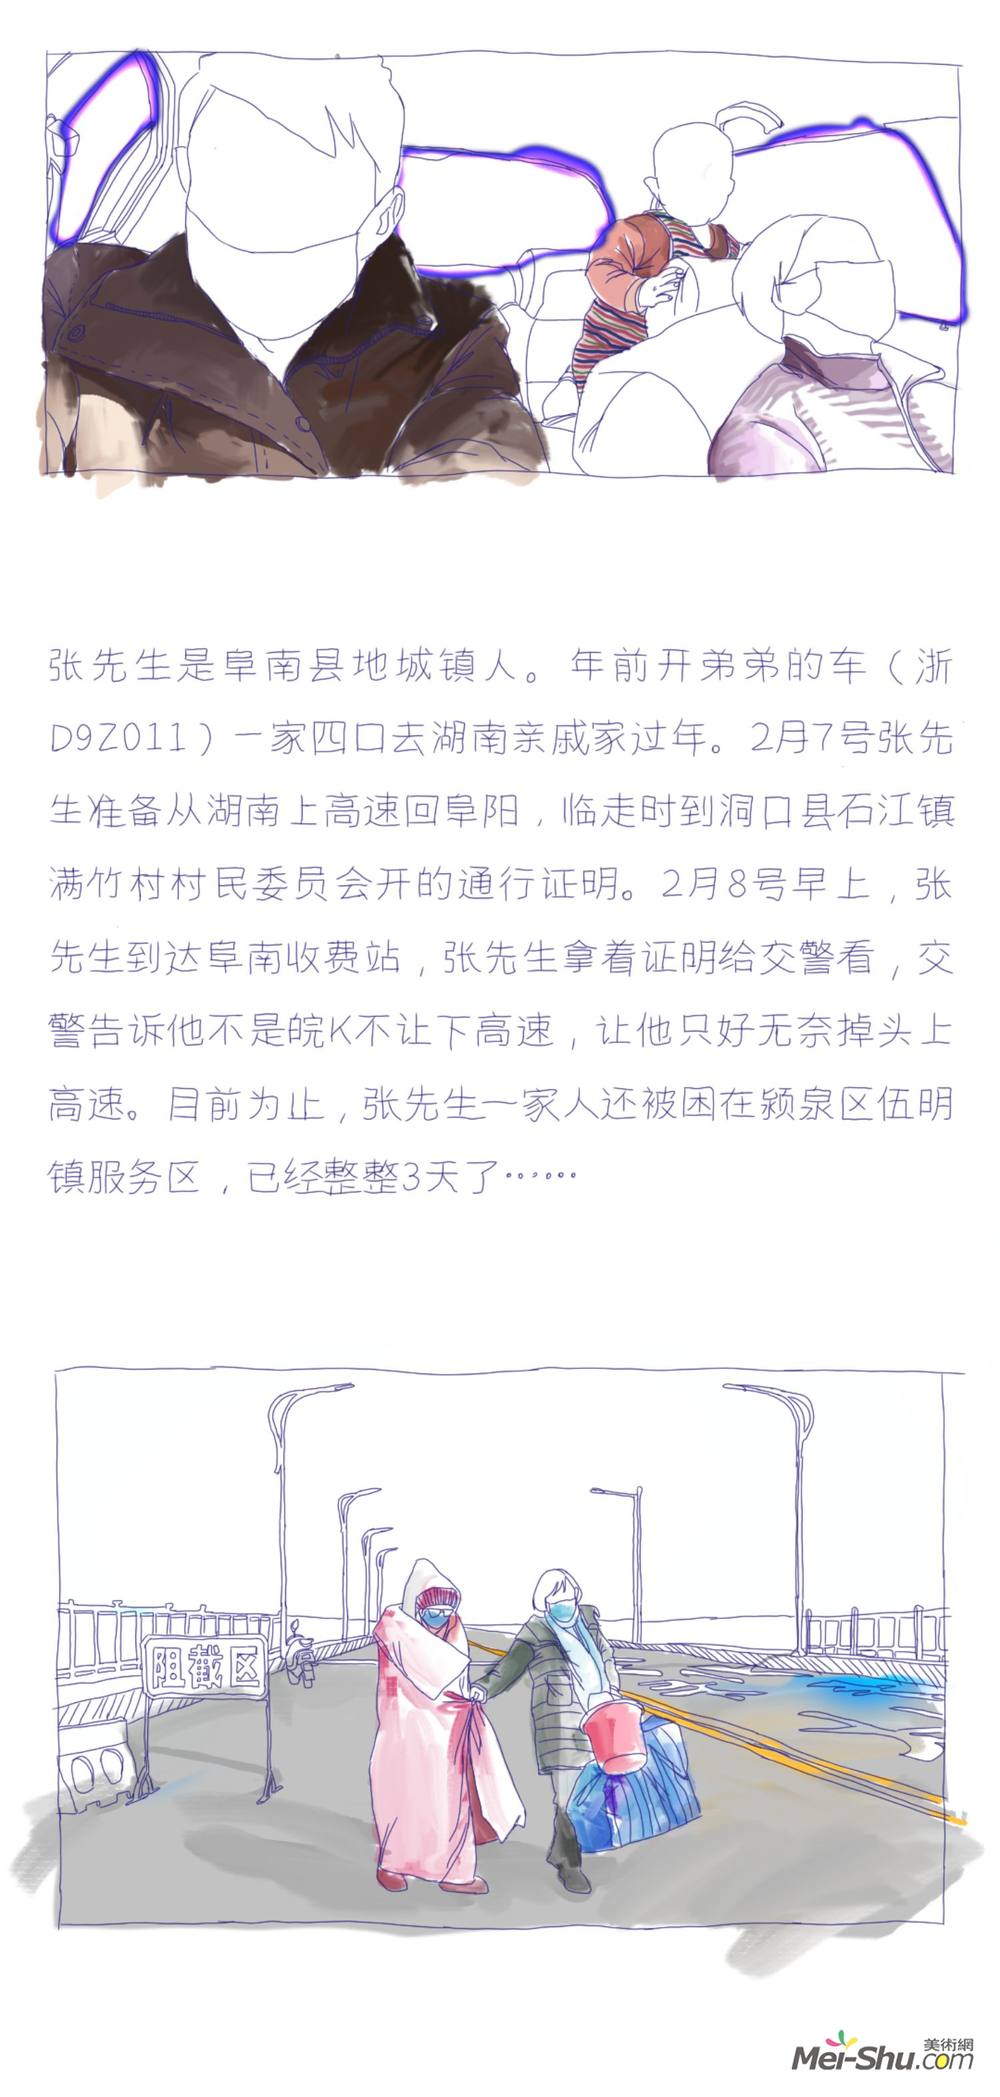 张先生是阜南县地城镇人。年前开弟弟的车（浙
D9Z011）一家四口去湖南亲戚家过年。2月7号张先
生准备从湖南上高速回阜阳，临走时到洞口县石江镇
满竹村村民委员会开的通行证明。2月8号早上，张
先生到达阜南收费站，张先生拿着证明给交警看，交
警告诉他不是皖K不让下高速，让他只好无奈掉头上
高速。目前为止，张先生一家人还被困在颍泉区伍明
镇服务区，已经整整3天了……
阻截区
美術網
Mei-Shu.com